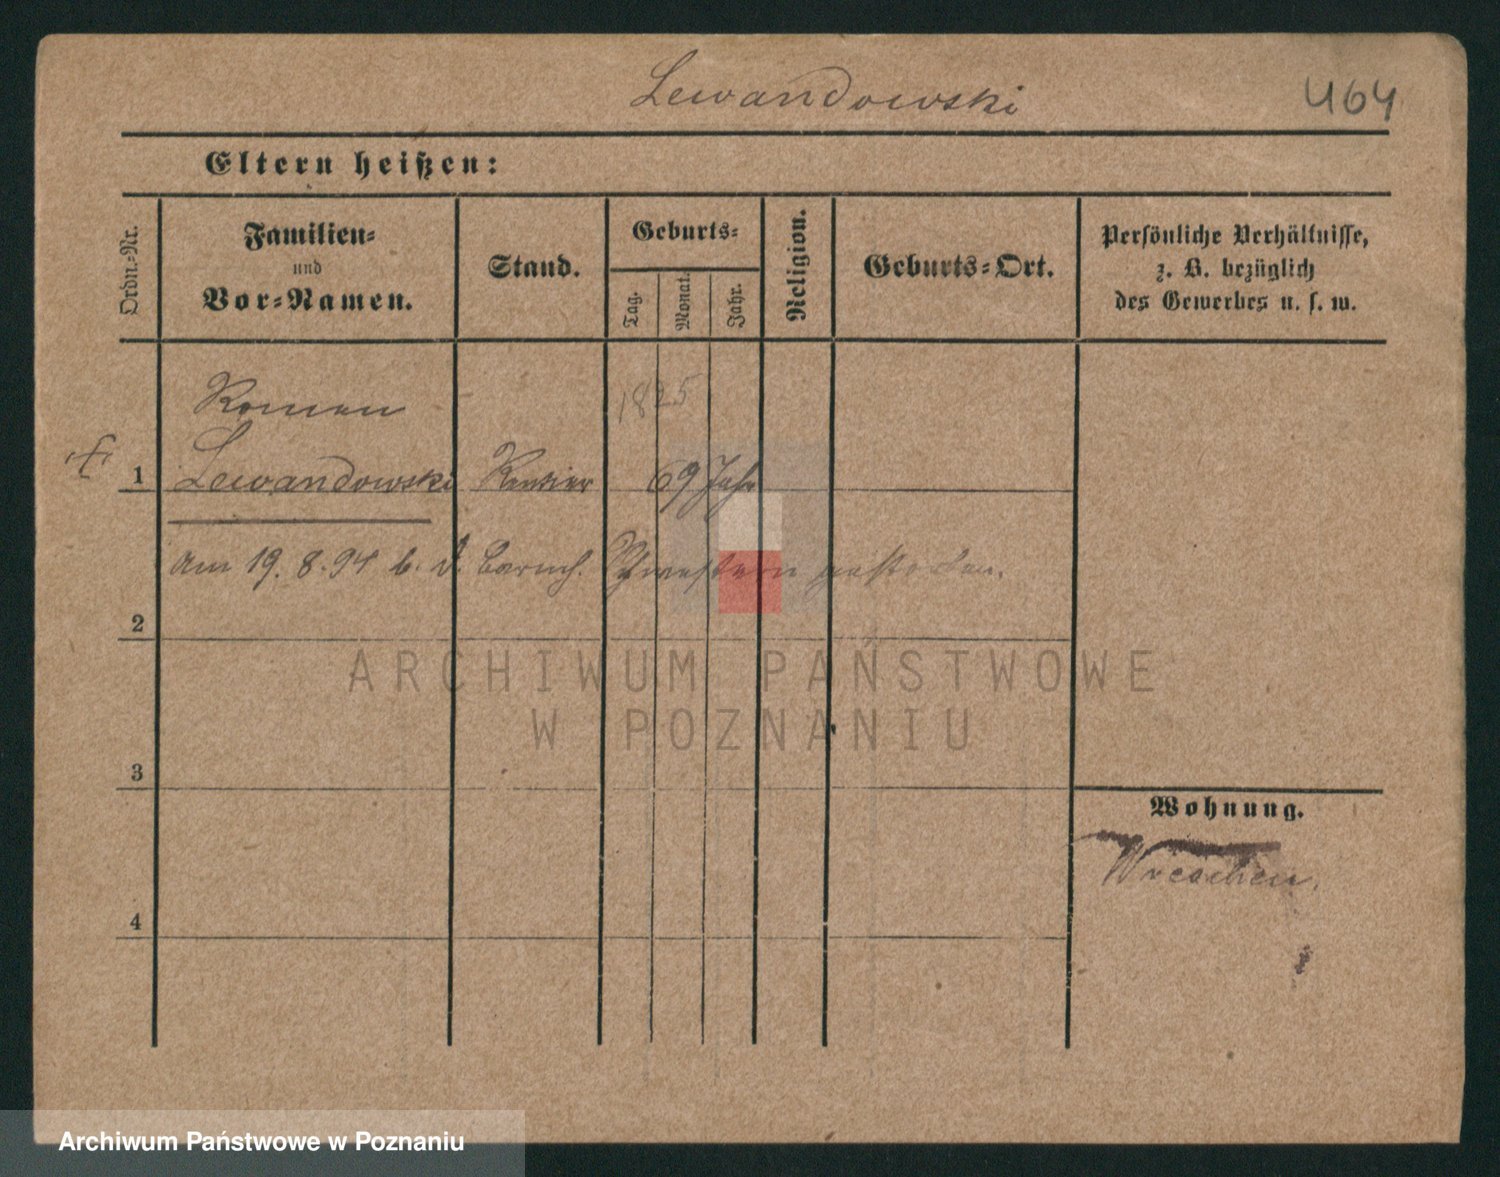 Lewandowski 464
Eltern heißen:
Ordn.-Nr.
Familien-
und
Vor-Namen.
Stand.
Geburts-
Tag.
Monat.
Jahr.
Religion.
Geburts-Ort.
Persönliche Verhältnisse,
z. B. bezüglich
des Gewerbes u. s. w.
Roman
1825
1 Lewandowski Rentier 69 Jahr
am 19.8.94 b. d. barmh. Schwestern gestorben.
2
ARCHIWUM PAŃSTWOWE
W POZNANIU
3
Wohnung.
Wreschen.
4
Archiwum Państwowe w Poznaniu